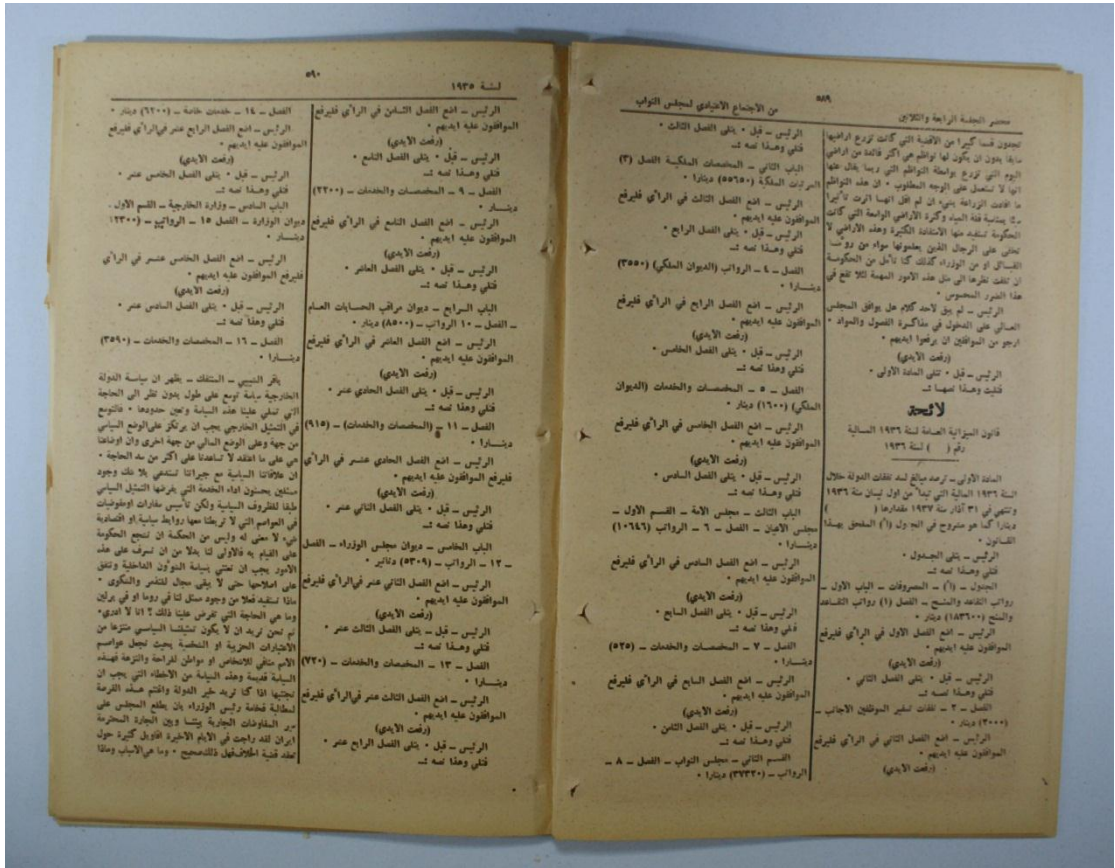 ٥٨٩
محضر الجلسة الرابعة والثلاثين
من الاجتماع الاعتيادي لمجلس النواب
تجدون قسما كبيرا من الاقضية التي كانت تزرع اراضيها
سابقا بدون ان يكون لها نواظم هي اكثر فائدة من اراضي
اليوم التي تزرع بواسطة النواظم التي ربما يقال عنها
انها لا تستعمل على الوجه المطلوب • ان هذه النواظم
ما افادت الزراعة بشيء ان لم اقل انها اثرت تأثيرا
سيئا بمناسبة قلة المياه وكثرة الاراضي الواسعة التي كانت
الحكومة تستفيد منها الاستفادة الكثيرة وهذه الاراضي لا
تخفى على الرجال الذين يعلمونها سواء من رؤسا
القبائل او من الوزراء كذلك كنا نأمل من الحكومة
ان تلفت نظرها الى مثل هذه الامور المهمة لئلا تقع في
هذا الضرر المحسوس •
الرئيس ــ لم يبق لاحد كلام هل يوافق المجلس
العالي على الدخول في مذاكرة الفصول والمواد •
ارجو من الموافقين ان يرفعوا ايديهم •
(رفعت الأيدي)
الرئيس ــ قبل • تتلى المادة الأولى •
فتليت وهذا نصها :ــ
لائحة
قانون الميزانية العامة لسنة ١٩٣٦ المالية
رقم (    ) لسنة ١٩٣٦
المادة الأولى ــ ترصد مبالغ لسد نفقات الدولة خلال
السنة ١٩٣٦ المالية التي تبدأ من اول نيسان سنة ١٩٣٦
وتنتهي في ٣١ آذار سنة ١٩٣٧ مقدارها (    )
دينارا كما هو مشروح في الجدول (أ) الملحق بهذا
القانون •
الرئيس ــ يتلى الجدول •
فتلي وهذا نصه :ــ
الجدول ــ (أ) ــ المصروفات ــ الباب الأول ــ
رواتب التقاعد والمنح ــ الفصل (١) رواتب التقاعد
والمنح (١٨٣٦٠٠) دينار •
الرئيس ــ اضع الفصل الأول في الرأي فليرفع
الموافقون عليه ايديهم •
(رفعت الأيدي)
الرئيس ــ قبل • يتلى الفصل الثاني •
فتلي وهذا نصه :ــ
الفصل ــ ٢ ــ نفقات تسفير الموظفين الاجانب ــ
(٣٠٠٠) دينار •
الرئيس ــ اضع الفصل الثاني في الرأي فليرفع
الموافقون عليه ايديهم •
(رفعت الأيدي)
الرئيس ــ قبل • يتلى الفصل الثالث •
فتلي وهذا نصه :ــ
الباب الثاني ــ المخصصات الملكية الفصل (٣)
المرتبات الملكية (٥٥٦٥٠) دينارا •
الرئيس ــ اضع الفصل الثالث في الرأي فليرفع
الموافقون عليه ايديهم •
(رفعت الأيدي)
الرئيس ــ قبل • يتلى الفصل الرابع •
فتلي وهذا نصه :ــ
الفصل ــ ٤ ــ الرواتب (الديوان الملكي) (٣٥٥٠)
دينارا •
الرئيس ــ اضع الفصل الرابع في الرأي فليرفع
الموافقون عليه ايديهم •
(رفعت الأيدي)
الرئيس ــ قبل • يتلى الفصل الخامس •
فتلي وهذا نصه :ــ
الفصل ــ ٥ ــ المخصصات والخدمات (الديوان
الملكي) (١٦٠٠) دينار •
الرئيس ــ اضع الفصل الخامس في الرأي فليرفع
الموافقون عليه ايديهم •
(رفعت الأيدي)
الرئيس ــ قبل • يتلى الفصل السادس •
فتلي وهذا نصه :ــ
الباب الثالث ــ مجلس الامة ــ القسم الأول ــ
مجلس الاعيان ــ الفصل ــ ٦ ــ الرواتب (١٠٦٤٦)
دينارا •
الرئيس ــ اضع الفصل السادس في الرأي فليرفع
الموافقون عليه ايديهم •
(رفعت الأيدي)
الرئيس ــ قبل • يتلى الفصل السابع •
فتلي وهذا نصه :ــ
الفصل ــ ٧ ــ المخصصات والخدمات ــ (٥٢٥)
دينارا •
الرئيس ــ اضع الفصل السابع في الرأي فليرفع
الموافقون عليه ايديهم •
(رفعت الأيدي)
الرئيس ــ قبل • يتلى الفصل الثامن •
فتلي وهذا نصه :ــ
القسم الثاني ــ مجلس النواب ــ الفصل ــ ٨ ــ
الرواتب ــ (٣٧٣٢٠) دينارا •
٥٩٠
لسنة ١٩٣٥
الرئيس ــ اضع الفصل الثامن في الرأي فليرفع
الموافقون عليه ايديهم •
(رفعت الأيدي)
الرئيس ــ قبل • يتلى الفصل التاسع •
فتلي وهذا نصه :ــ
الفصل ــ ٩ ــ المخصصات والخدمات ــ (٢٢٠٠)
دينار •
الرئيس ــ اضع الفصل التاسع في الرأي فليرفع
الموافقون عليه ايديهم •
(رفعت الأيدي)
الرئيس ــ قبل • يتلى الفصل العاشر •
فتلي وهذا نصه :ــ
الباب الرابع ــ ديوان مراقب الحسابات العام
ــ الفصل ــ ١٠ الرواتب ــ (٨٥٠٠) دينار •
الرئيس ــ اضع الفصل العاشر في الرأي فليرفع
الموافقون عليه ايديهم •
(رفعت الأيدي)
الرئيس ــ قبل • يتلى الفصل الحادي عشر •
فتلي وهذا نصه :ــ
الفصل ــ ١١ ــ (المخصصات والخدمات) ــ (٩١٥)
دينارا •
الرئيس ــ اضع الفصل الحادي عشر في الرأي
فليرفع الموافقون عليه ايديهم •
(رفعت الأيدي)
الرئيس ــ قبل • يتلى الفصل الثاني عشر •
فتلي وهذا نصه :ــ
الباب الخامس ــ ديوان مجلس الوزراء ــ الفصل
ــ ١٢ ــ الرواتب ــ (٥٣٠٩) دنانير •
الرئيس ــ اضع الفصل الثاني عشر في الرأي فليرفع
الموافقون عليه ايديهم •
(رفعت الأيدي)
الرئيس ــ قبل ــ يتلى الفصل الثالث عشر •
فتلي وهذا نصه :ــ
الفصل ــ ١٣ ــ المخصصات والخدمات ــ (٧٢٠)
دينارا •
الرئيس ــ اضع الفصل الثالث عشر في الرأي فليرفع
الموافقون عليه ايديهم •
(رفعت الأيدي)
الرئيس ــ قبل • يتلى الفصل الرابع عشر •
فتلي وهذا نصه :ــ
الفصل ــ ١٤ ــ خدمات خاصة ــ (٦٢٠٠) دينار •
الرئيس ــ اضع الفصل الرابع عشر في الرأي فليرفع
الموافقون عليه ايديهم •
(رفعت الأيدي)
الرئيس ــ قبل • يتلى الفصل الخامس عشر •
فتلي وهذا نصه :ــ
الباب السادس ــ وزارة الخارجية ــ القسم الأول •
ديوان الوزارة ــ الفصل ١٥ ــ الرواتب ــ (١٢٣٠٠)
دينار •
الرئيس ــ اضع الفصل الخامس عشر في الرأي
فليرفع الموافقون عليه ايديهم •
(رفعت الأيدي)
الرئيس ــ قبل • يتلى الفصل السادس عشر •
فتلي وهذا نصه :ــ
الفصل ــ ١٦ ــ المخصصات والخدمات ــ (٣٥٩٠)
دينارا •
باقر الشبيبي ــ المنتفك ــ يظهر ان سياسة الدولة
الخارجية سياسة توسع على طول بدون نظر الى الحاجة
التي تملي علينا هذه السياسة وتعين حدودها • فالتوسع
في التمثيل الخارجي يجب ان يرتكز على الوضع السياسي
من جهة وعلى الوضع المالي من جهة اخرى وان اوضاعنا
هي على ما اعتقد لا تساعدنا على اكثر من سد الحاجة •
ان علاقاتنا السياسية مع جيراننا تستدعي بلا شك وجود
ممثلين يحسنون اداء الخدمة التي يفرضها التمثيل السياسي
طبقا للظروف السياسية ولكن تأسيس سفارات او مفوضيات
في العواصم التي لا تربطنا معها روابط سياسية او اقتصادية
شيء لا معنى له وليس من الحكمة ان تشجع الحكومة
على القيام به فالاولى لنا بدلا من ان نسرف على هذه
الامور يجب ان نعتني بسياسة الشؤون الداخلية وننفق
على اصلاحها حتى لا يبقى مجال للتذمر والشكوى •
ماذا نستفيد فعلا من وجود ممثل لنا في روما او في برلين
وما هي الحاجة التي تفرض علينا ذلك ؟ انا لا ادري •
ثم نحن نريد ان لا يكون تمثيلنا السياسي منتزعا من
الاعتبارات الحزبية او الشخصية بحيث نجعل عواصم
الامم منافي للاشخاص او مواطن للراحة والنزهة فهذه
السياسة قديمة وهذه السياسة من الاخطاء التي يجب ان
نجتنبها اذا كنا نريد خير الدولة واغتنم هذه الفرصة
لمطالبة فخامة رئيس الوزراء بان يطلع المجلس على
سير المفاوضات الجارية بيننا وبين الجارة المحترمة
ايران لقد راجت في الايام الاخيرة اقاويل كثيرة حول
تعقد قضية الخلاف فهل ذلك صحيح • وما هي الاسباب وماذا